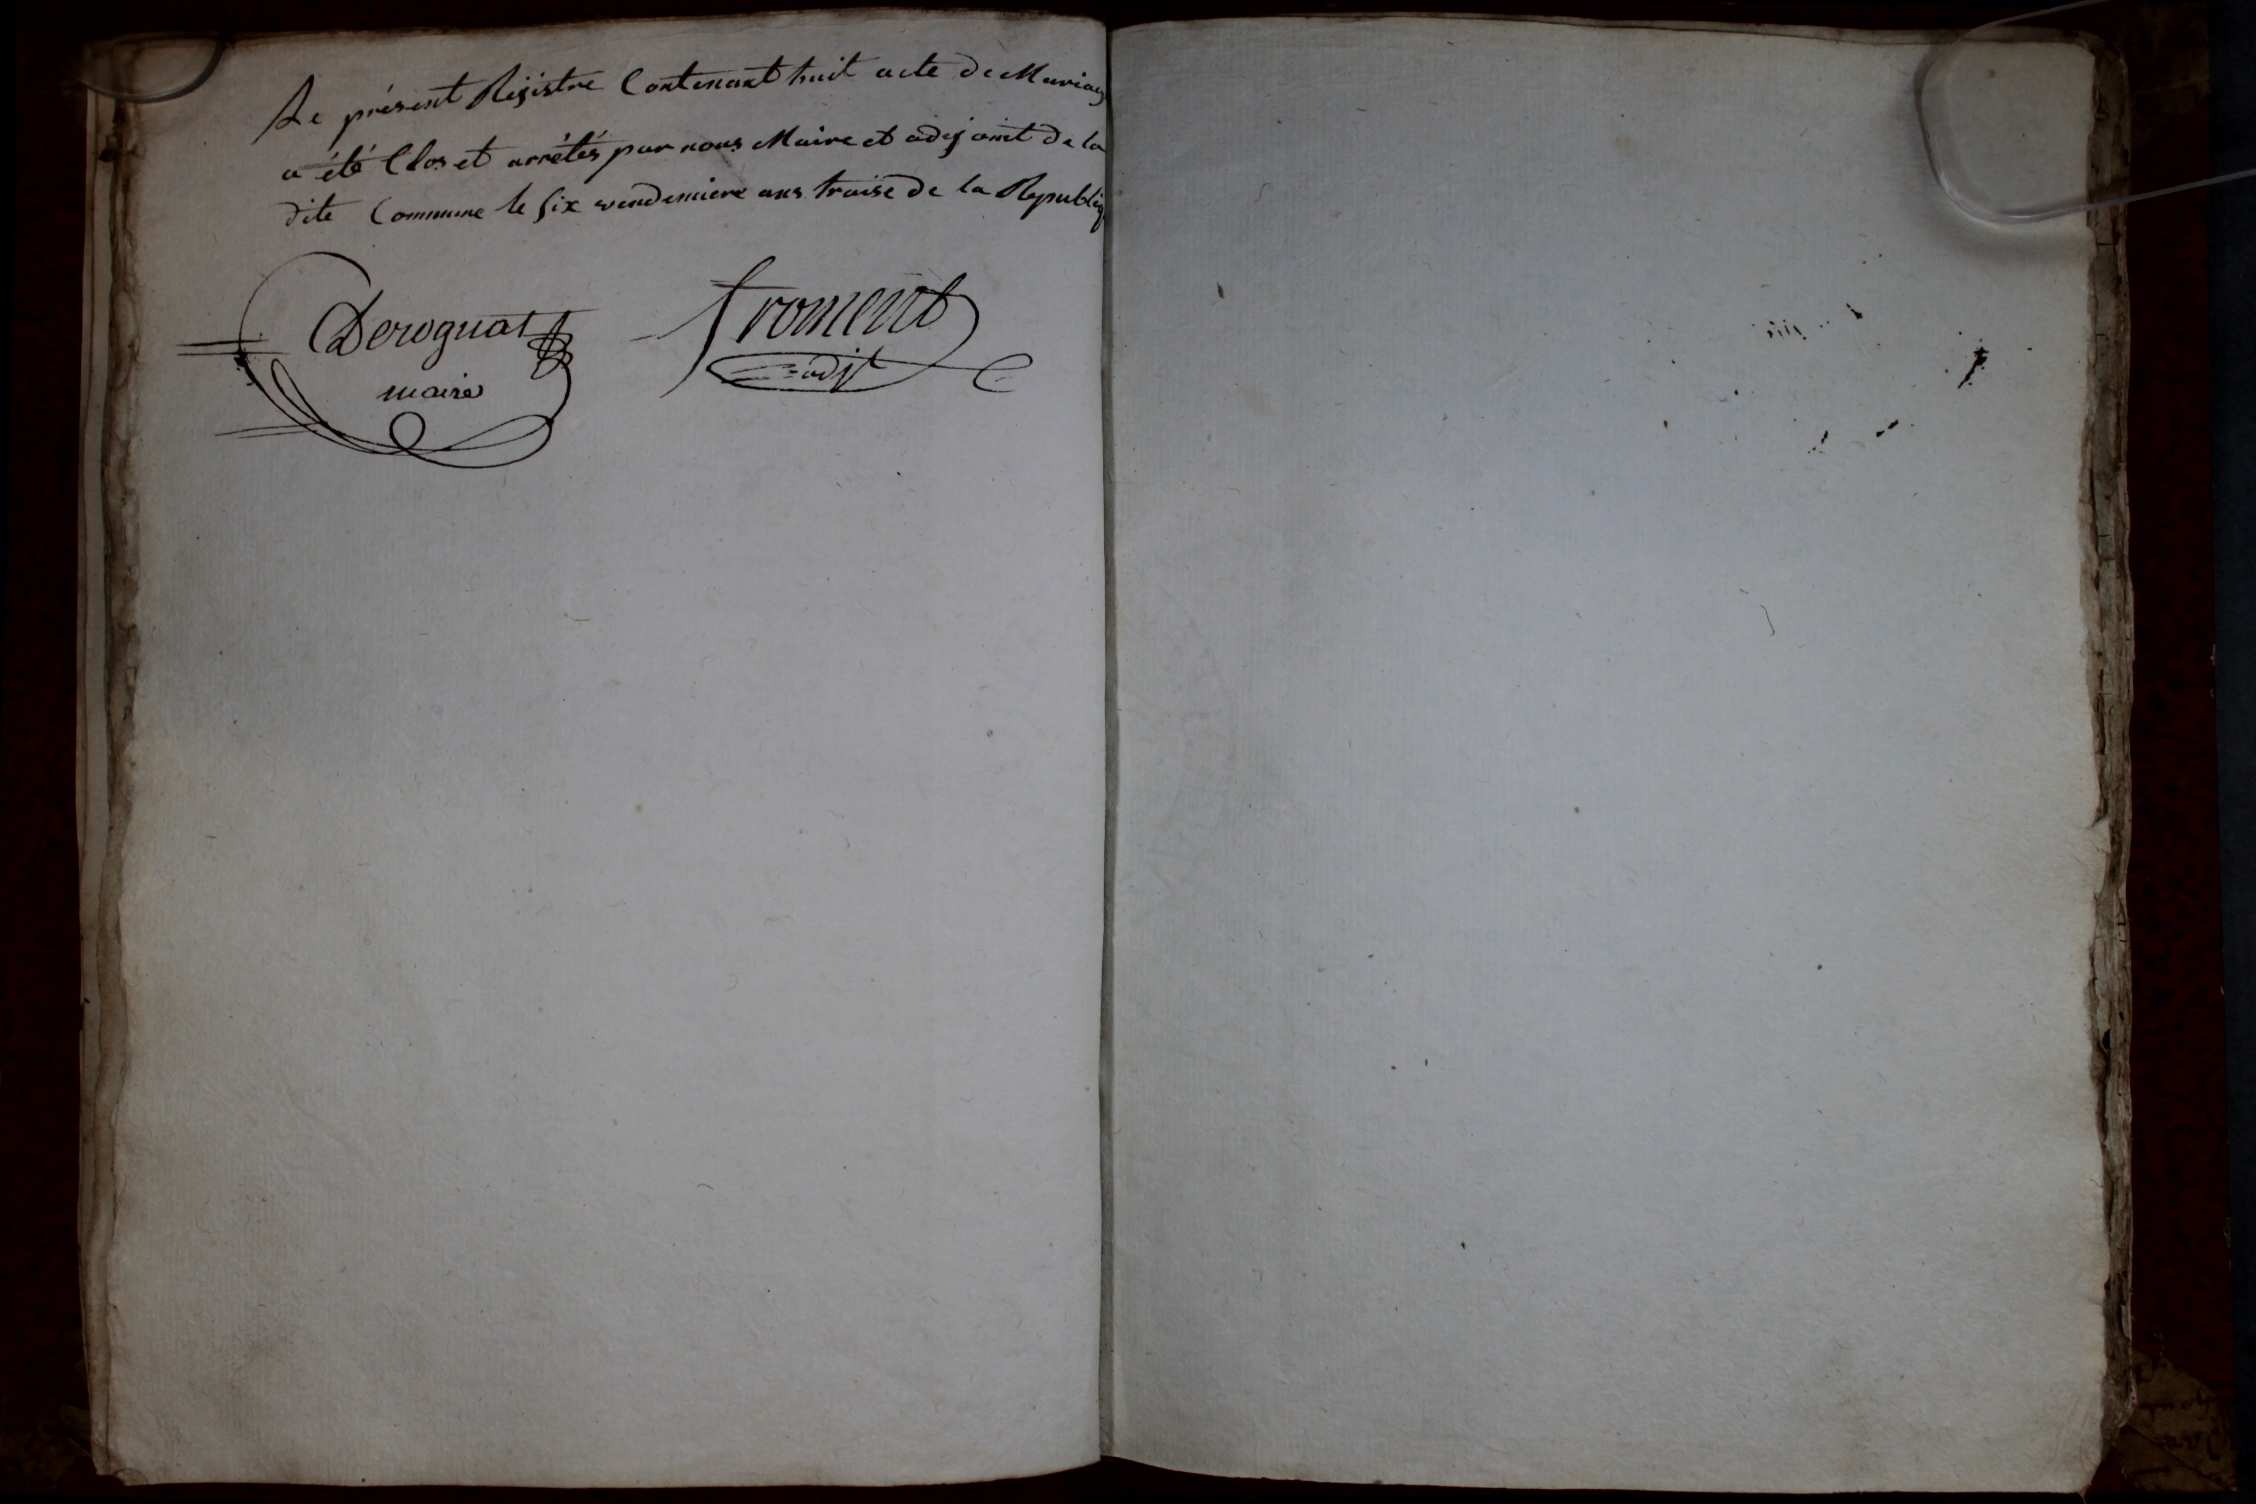 Le présent Registre Contenant huit acte de Mariag
a été Clos et arrêtés par nous Maire et adejoint de la
dite Commune le six vendemiere ans traise de la Republiq
Derognat froment
maire adjt